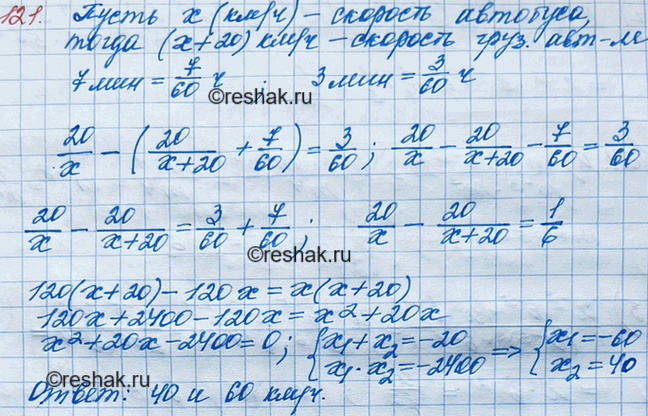 121. Пусть x (км/ч) – скорость автобуса,
тогда (x+20) км/ч – скорость груз. авт-ля
7 мин = 7/60 ч ; 3 мин = 3/60 ч
©reshak.ru
20/x - (20/(x+20) + 7/60) = 3/60 ; 20/x - 20/(x+20) - 7/60 = 3/60
©reshak.ru
20/x - 20/(x+20) = 3/60 + 7/60 ; 20/x - 20/(x+20) = 1/6
120(x+20) - 120x = x(x+20)
120x + 2400 - 120x = x² + 20x
x² + 20x - 2400 = 0 ; { x₁ + x₂ = -20 x₁ · x₂ = -2400 => { x₁ = -60 x₂ = 40
Ответ: 40 и 60 км/ч.
©reshak.ru